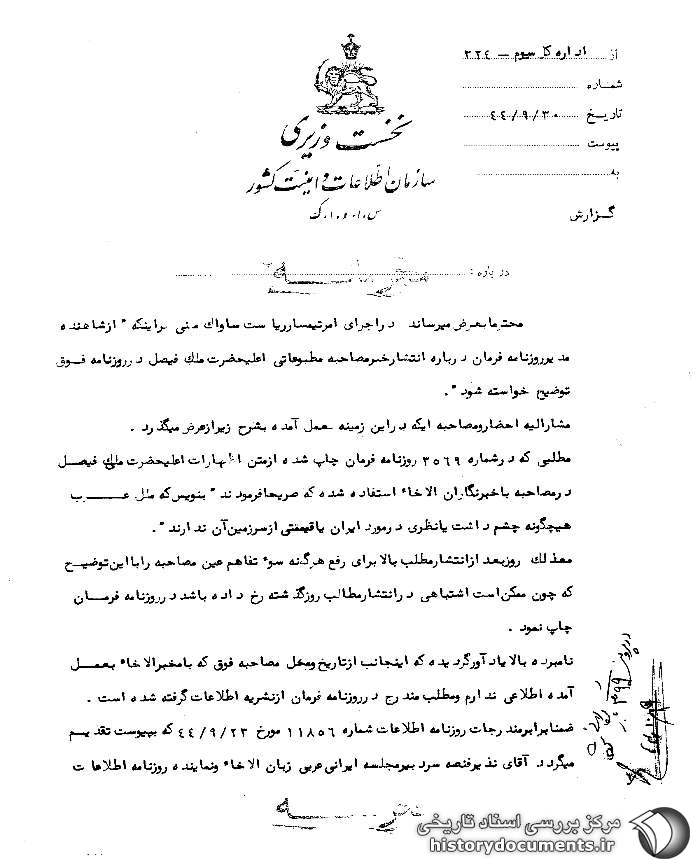 از اداره کل سوم - ۳۲۴
شماره
تاریخ ۴۴/۹/۳۰
پیوست
به
گزارش
نخست وزیری
سازمان اطلاعات و امنیت کشور
س.ا.و.ا.ک
درباره : محرمانه
محترما بعرض میرساند در اجرای امر تیمسار ریاست ساواک مبنی براینکه " از شاهنده
مدیر روزنامه فرمان درباره انتشار خبر مصاحبه مطبوعاتی اعلیحضرت ملک فیصل در روزنامه فوق
توضیح خواسته شود " .
مشارالیه احضار و مصاحبه ایکه در این زمینه بعمل آمده بشرح زیر از عرض میگذرد .
مطلبی که در شماره ۳۵۶۹ روزنامه فرمان چاپ شده از متن اظهارات اعلیحضرت ملک فیصل
در مصاحبه با خبرنگاران الاخاء استفاده شده که صریحا فرمودند " بنویس که ملل عرب
هیچگونه چشم داشت یا نظری در مورد ایران یا قیمتی از سرزمین آن ندارند " .
معذلک روز بعد از انتشار مطلب بالا برای رفع هرگونه سوء تفاهم عین مصاحبه را با این توضیح
که چون ممکن است اشتباهی در انتشار مطالب روز گذشته رخ داده باشد در روزنامه فرمان
چاپ نمود .
نامبرده بالا یاد آور گردیده که اینجانب از تاریخ و محل مصاحبه فوق که با مخبر الاخاء بعمل
آمده اطلاعی ندارم و مطلب مندرج در روزنامه فرمان از نشریه اطلاعات گرفته شده است .
ضمنا برابر مندرجات روزنامه اطلاعات شماره ۱۱۸۵۶ مورخ ۴۴/۹/۲۳ که بپیوست تقدیم
میگردد آقای نذیر فنصه سردبیر مجلسه ایرانی عربی زبان الاخاء و نماینده روزنامه اطلاعات
محرمانه
مرکز بررسی اسناد تاریخی
historydocuments.ir